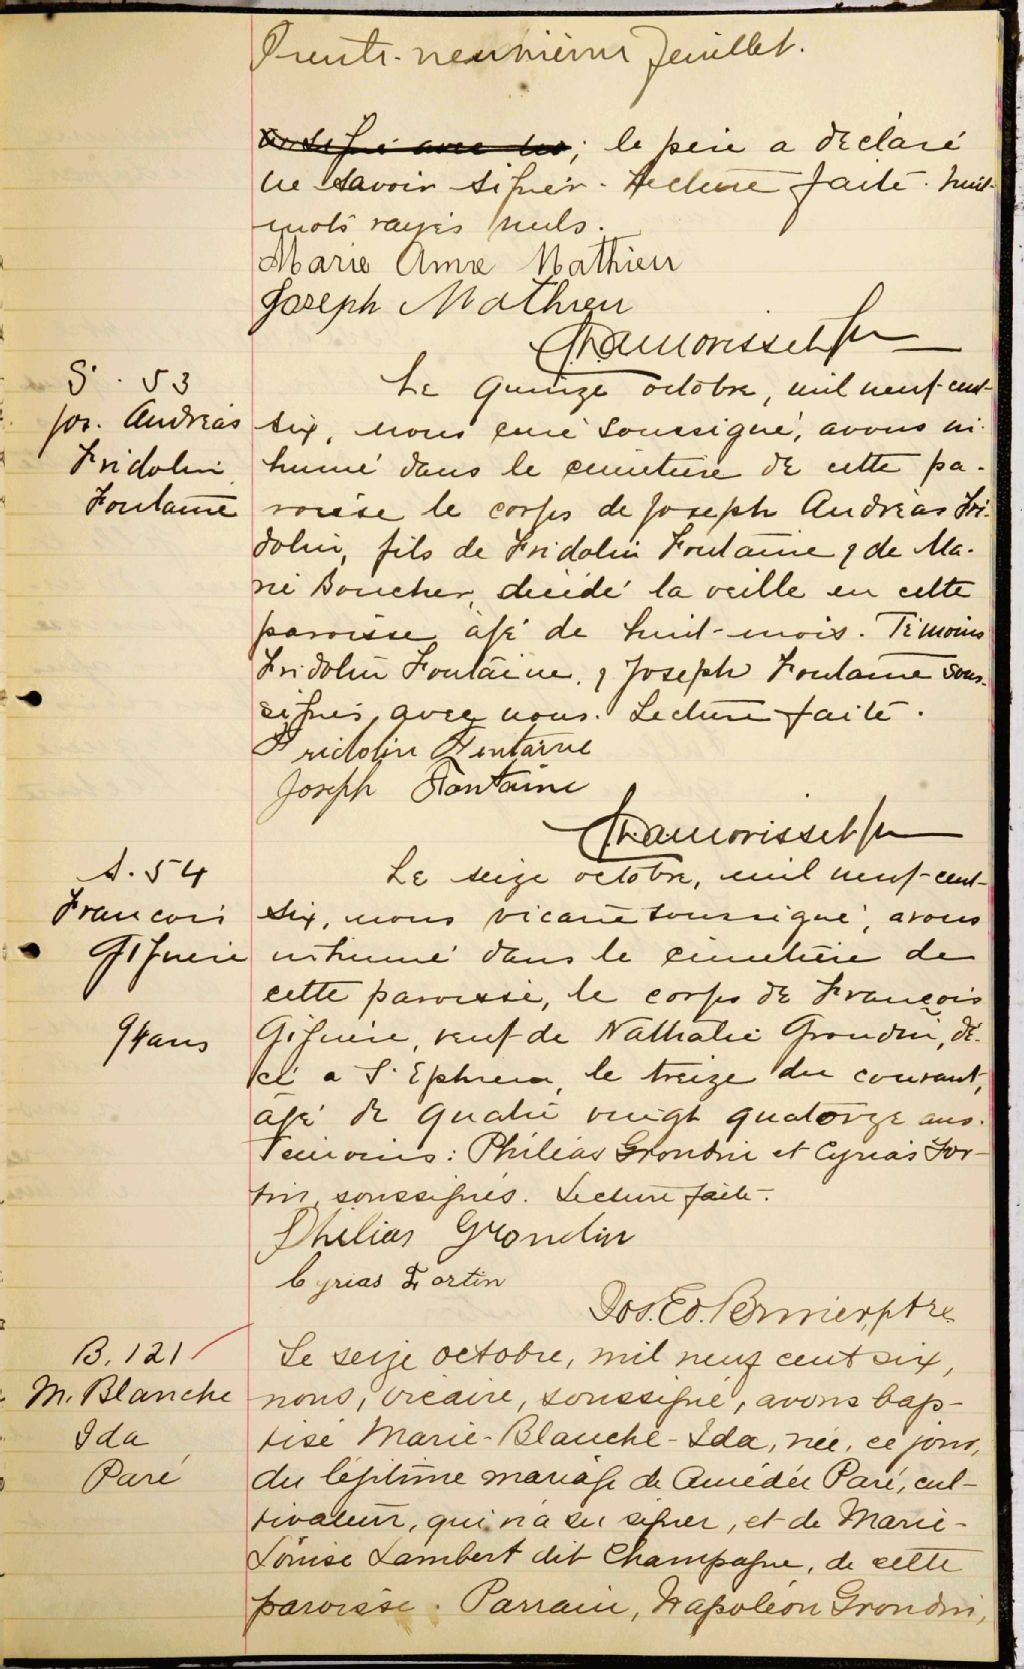 Trente-neuvième feuillet.
; le père a déclaré
ne savoir signer. Lecture faite. huit
mots rayés nuls.
Marie Anna Mathieu
Joseph Mathieu
Morisset ptr
S. 53
Jos. Andréas
Fridolin
Fontaine
Le quinze octobre, mil neuf-cent-
six, nous curé soussigné, avons in-
humé dans le cimetière de cette pa-
roisse le corps de Joseph Andréas Fri-
dolin, fils de Fridolin Fontaine & de Ma-
rie Boucher, décédé la veille en cette
paroisse âgé de huit-mois. Témoins
Fridolin Fontaine, & Joseph Fontaine sous-
signés avec nous. Lecture faite.
Fridolin Fontaine
Joseph Fontaine
Morisset ptr
S. 54
François
Giguère
94 ans
Le seize octobre, mil neuf-cent-
six, nous vicaire soussigné, avons
inhumé dans le cimetière de
cette paroisse, le corps de François
Giguère, veuf de Nathalie Grondin, dé-
cé a S. Ephrem, le treize du courant,
âgé de quatre vingt quatorze ans.
Témoins: Philias Grondin et Cyrias For-
tin, soussignés. Lecture faite.
Philias Grondin
Cyrias Fortin
Jos. Ed. Bernier, ptre
B. 121
M. Blanche
Ida
Paré
Le seize octobre, mil neuf cent six,
nous, vicaire, soussigné, avons bap-
tisé Marie-Blanche-Ida, née, ce jour,
du légitime mariage de Amédée Paré, cul-
tivateur, qui n'a su signer, et de Marie-
Louise Lambert dit Champagne, de cette
paroisse. Parrain, Napoléon Grondin,